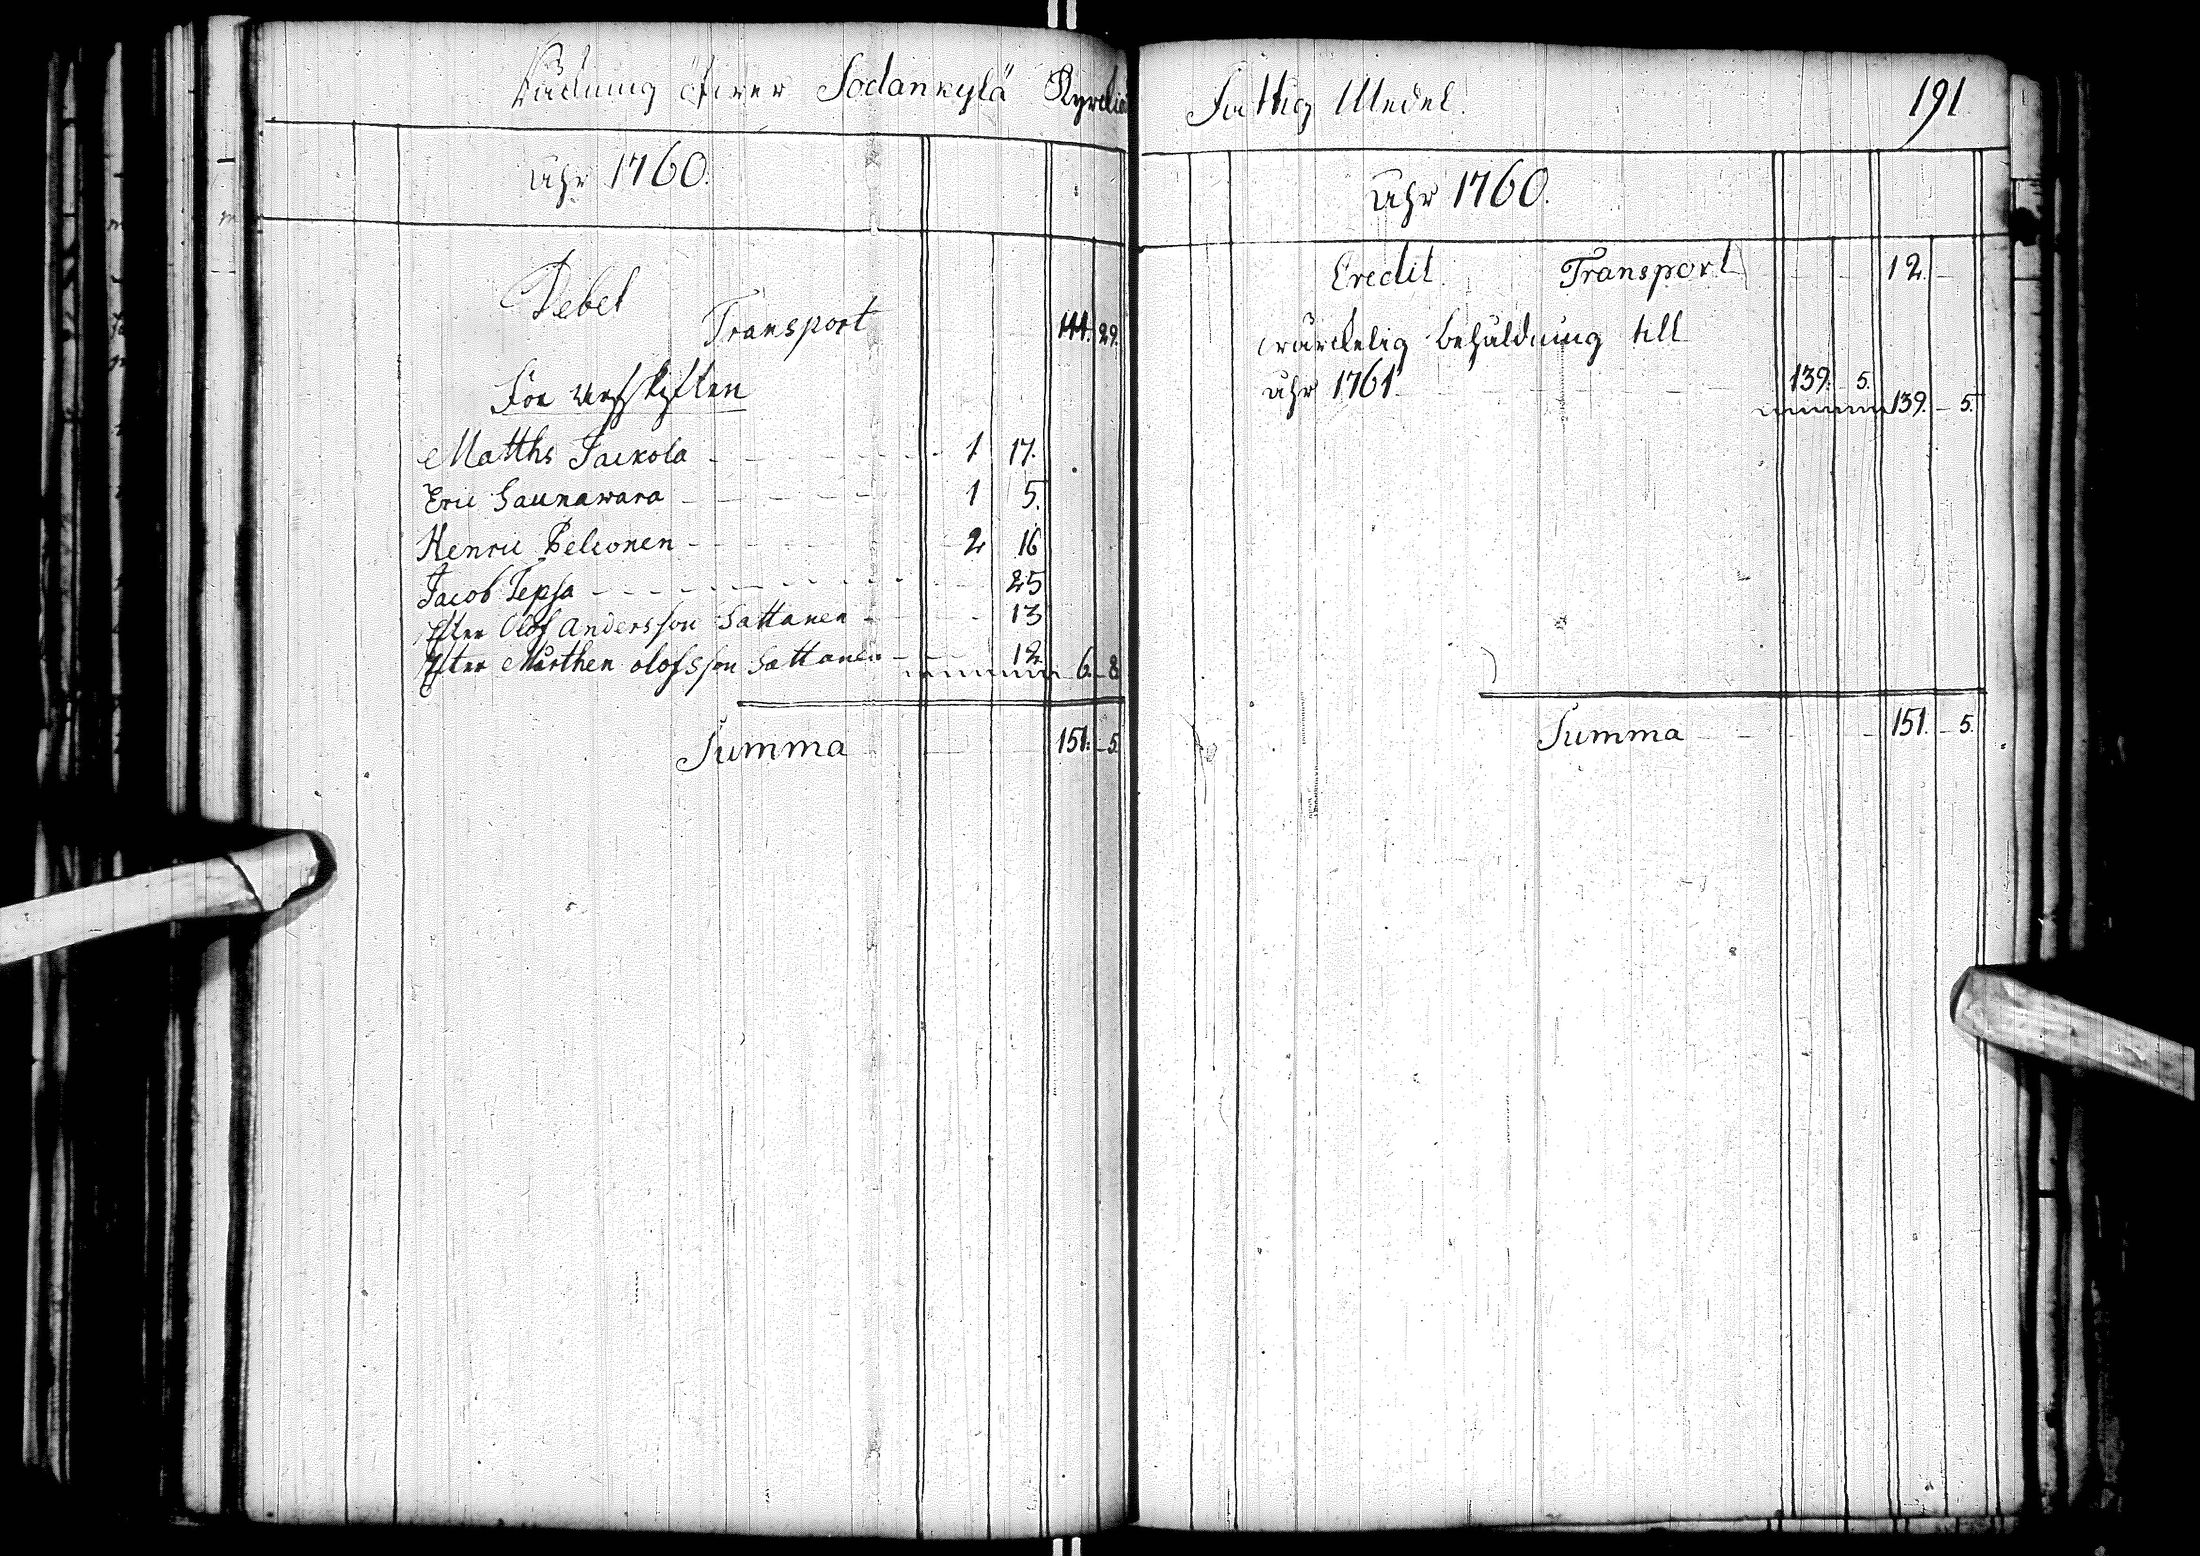 Räkning öfwer Sodankylä Kyrckio
Åhr 1760.
Debet
Transport 144. 29.
För
Matths Jackola 1 17.
Eric Saunawara 1 5.
Henric Pelconen 2 16
Jacob Tepsa 25
Efter Olof Andersson Sattanen 13
Efter Mårthen olofsson Sattanen 12 6. 8
Summa 151. 5
Fattig Medel. 191
Åhr 1760.
Credit Transport 12.
wärckelig behåldning till
åhr 1761. 139. 5. 139. 5.
Summa 151. 5.